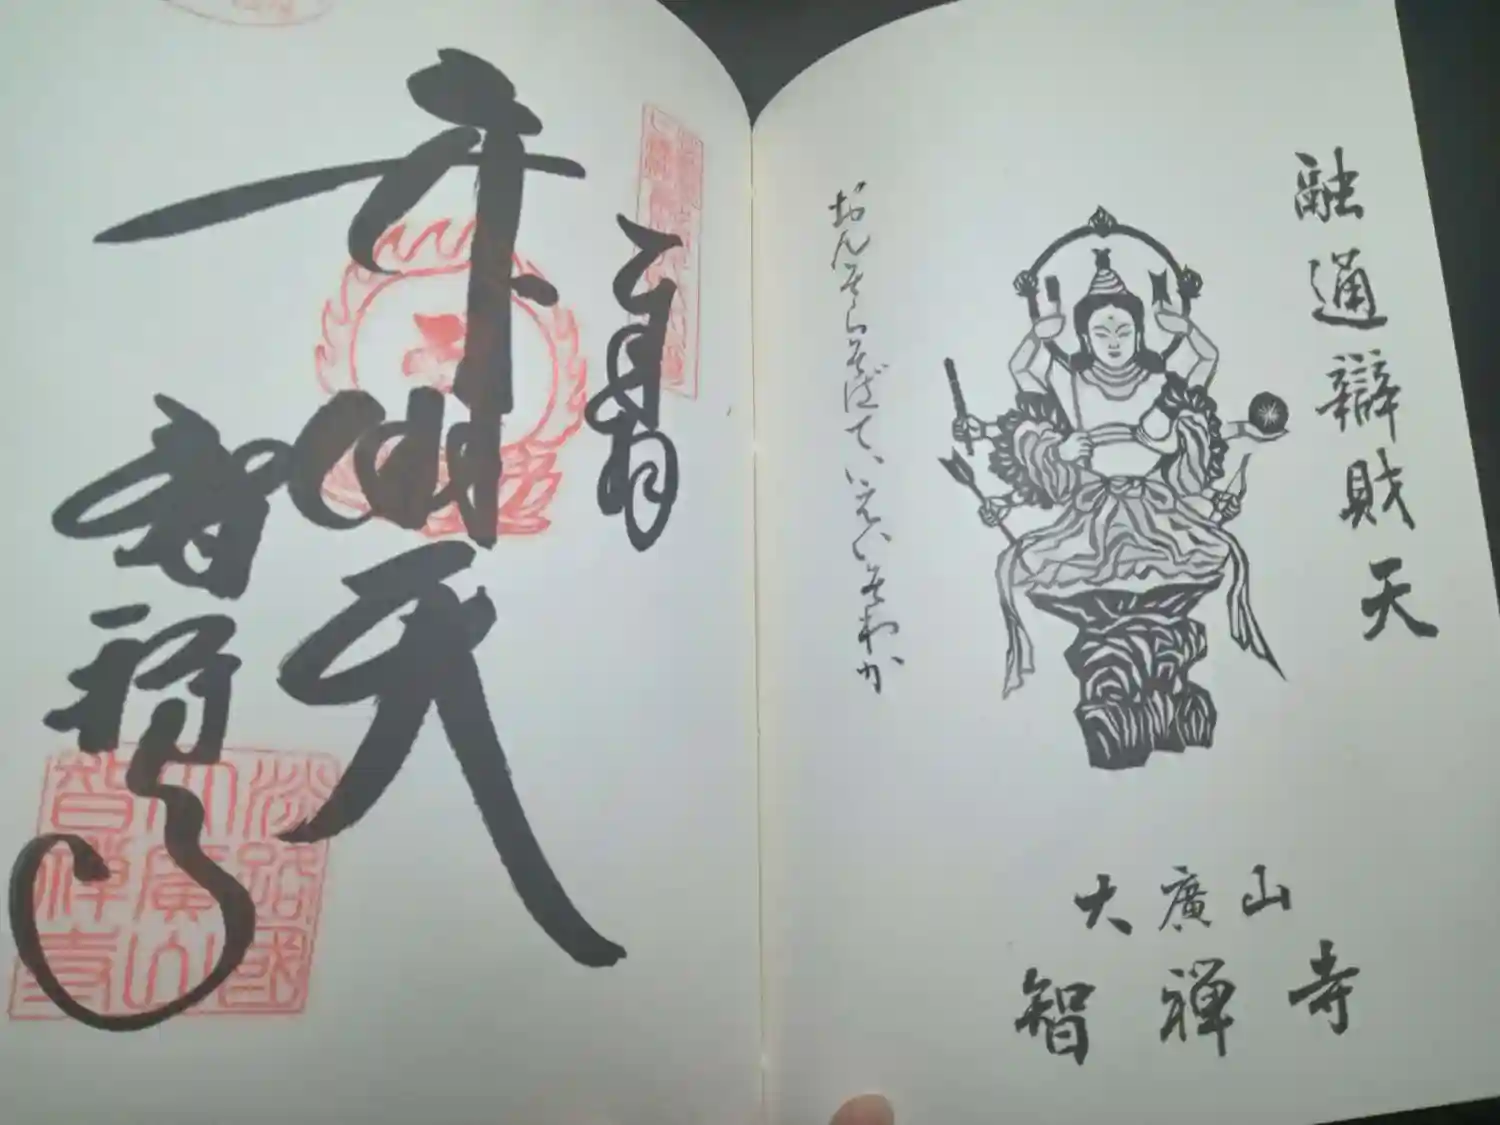 融通辯財天
おんそらそばていえいそわか
大廣山
智禅寺
弁財天
智禅寺
淡路國
大廣山
智禪寺